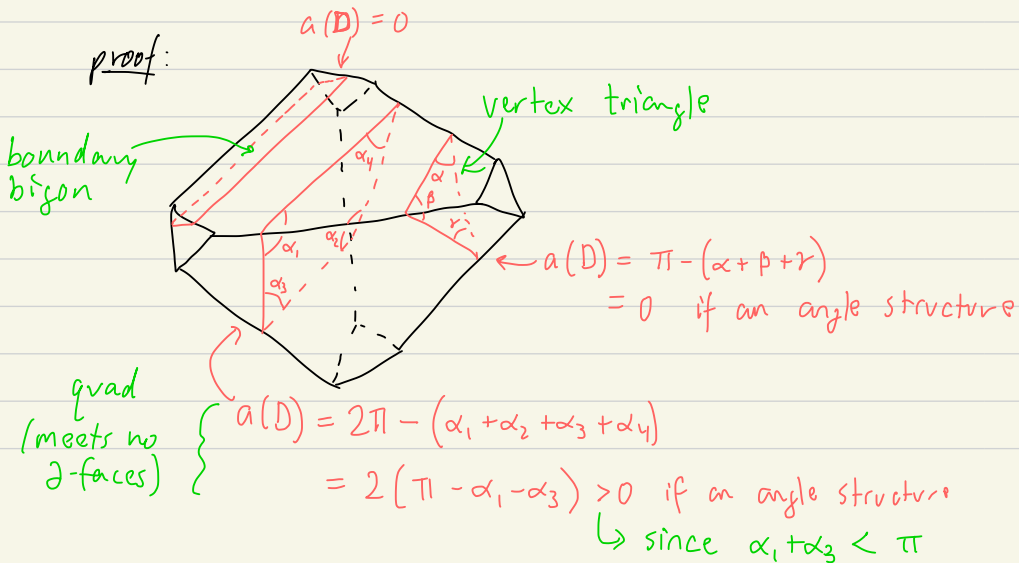 a(D) = 0
proof:
vertex triangle
boundary
bigon
α₄
α
β
γ
α₁
α₂
α₃
a(D) = π - (α + β + γ)
= 0 if an angle structure
quad
(meets no
∂-faces)
a(D) = 2π - (α₁ + α₂ + α₃ + α₄)
= 2(π - α₁ - α₃) > 0 if an angle structure
↳ since α₁ + α₃ < π